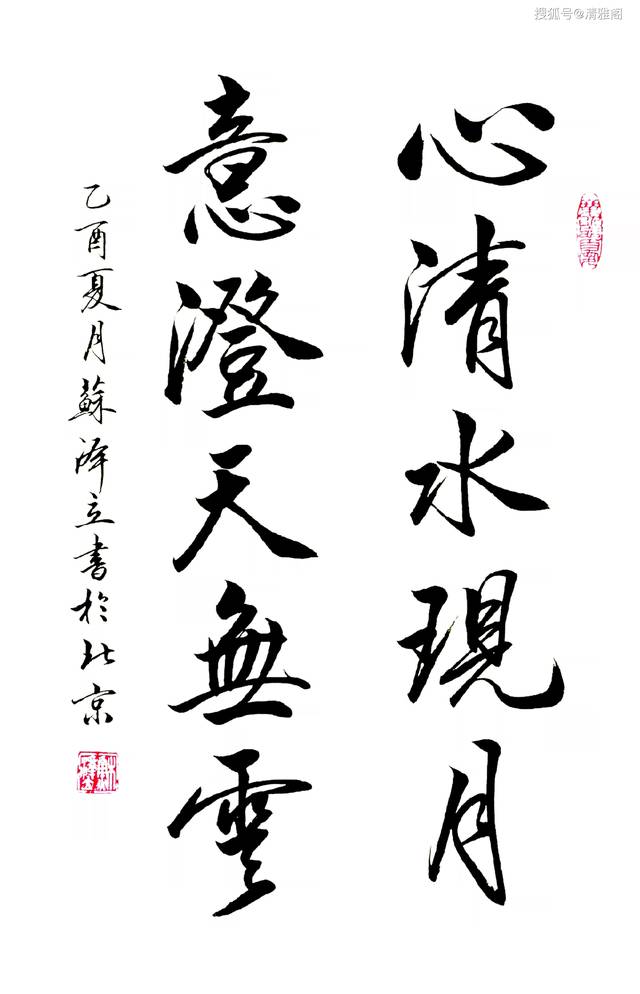 搜狐号@清雅阁
心清水現月
意澄天無雲
乙酉夏月蘇泽立書於北京